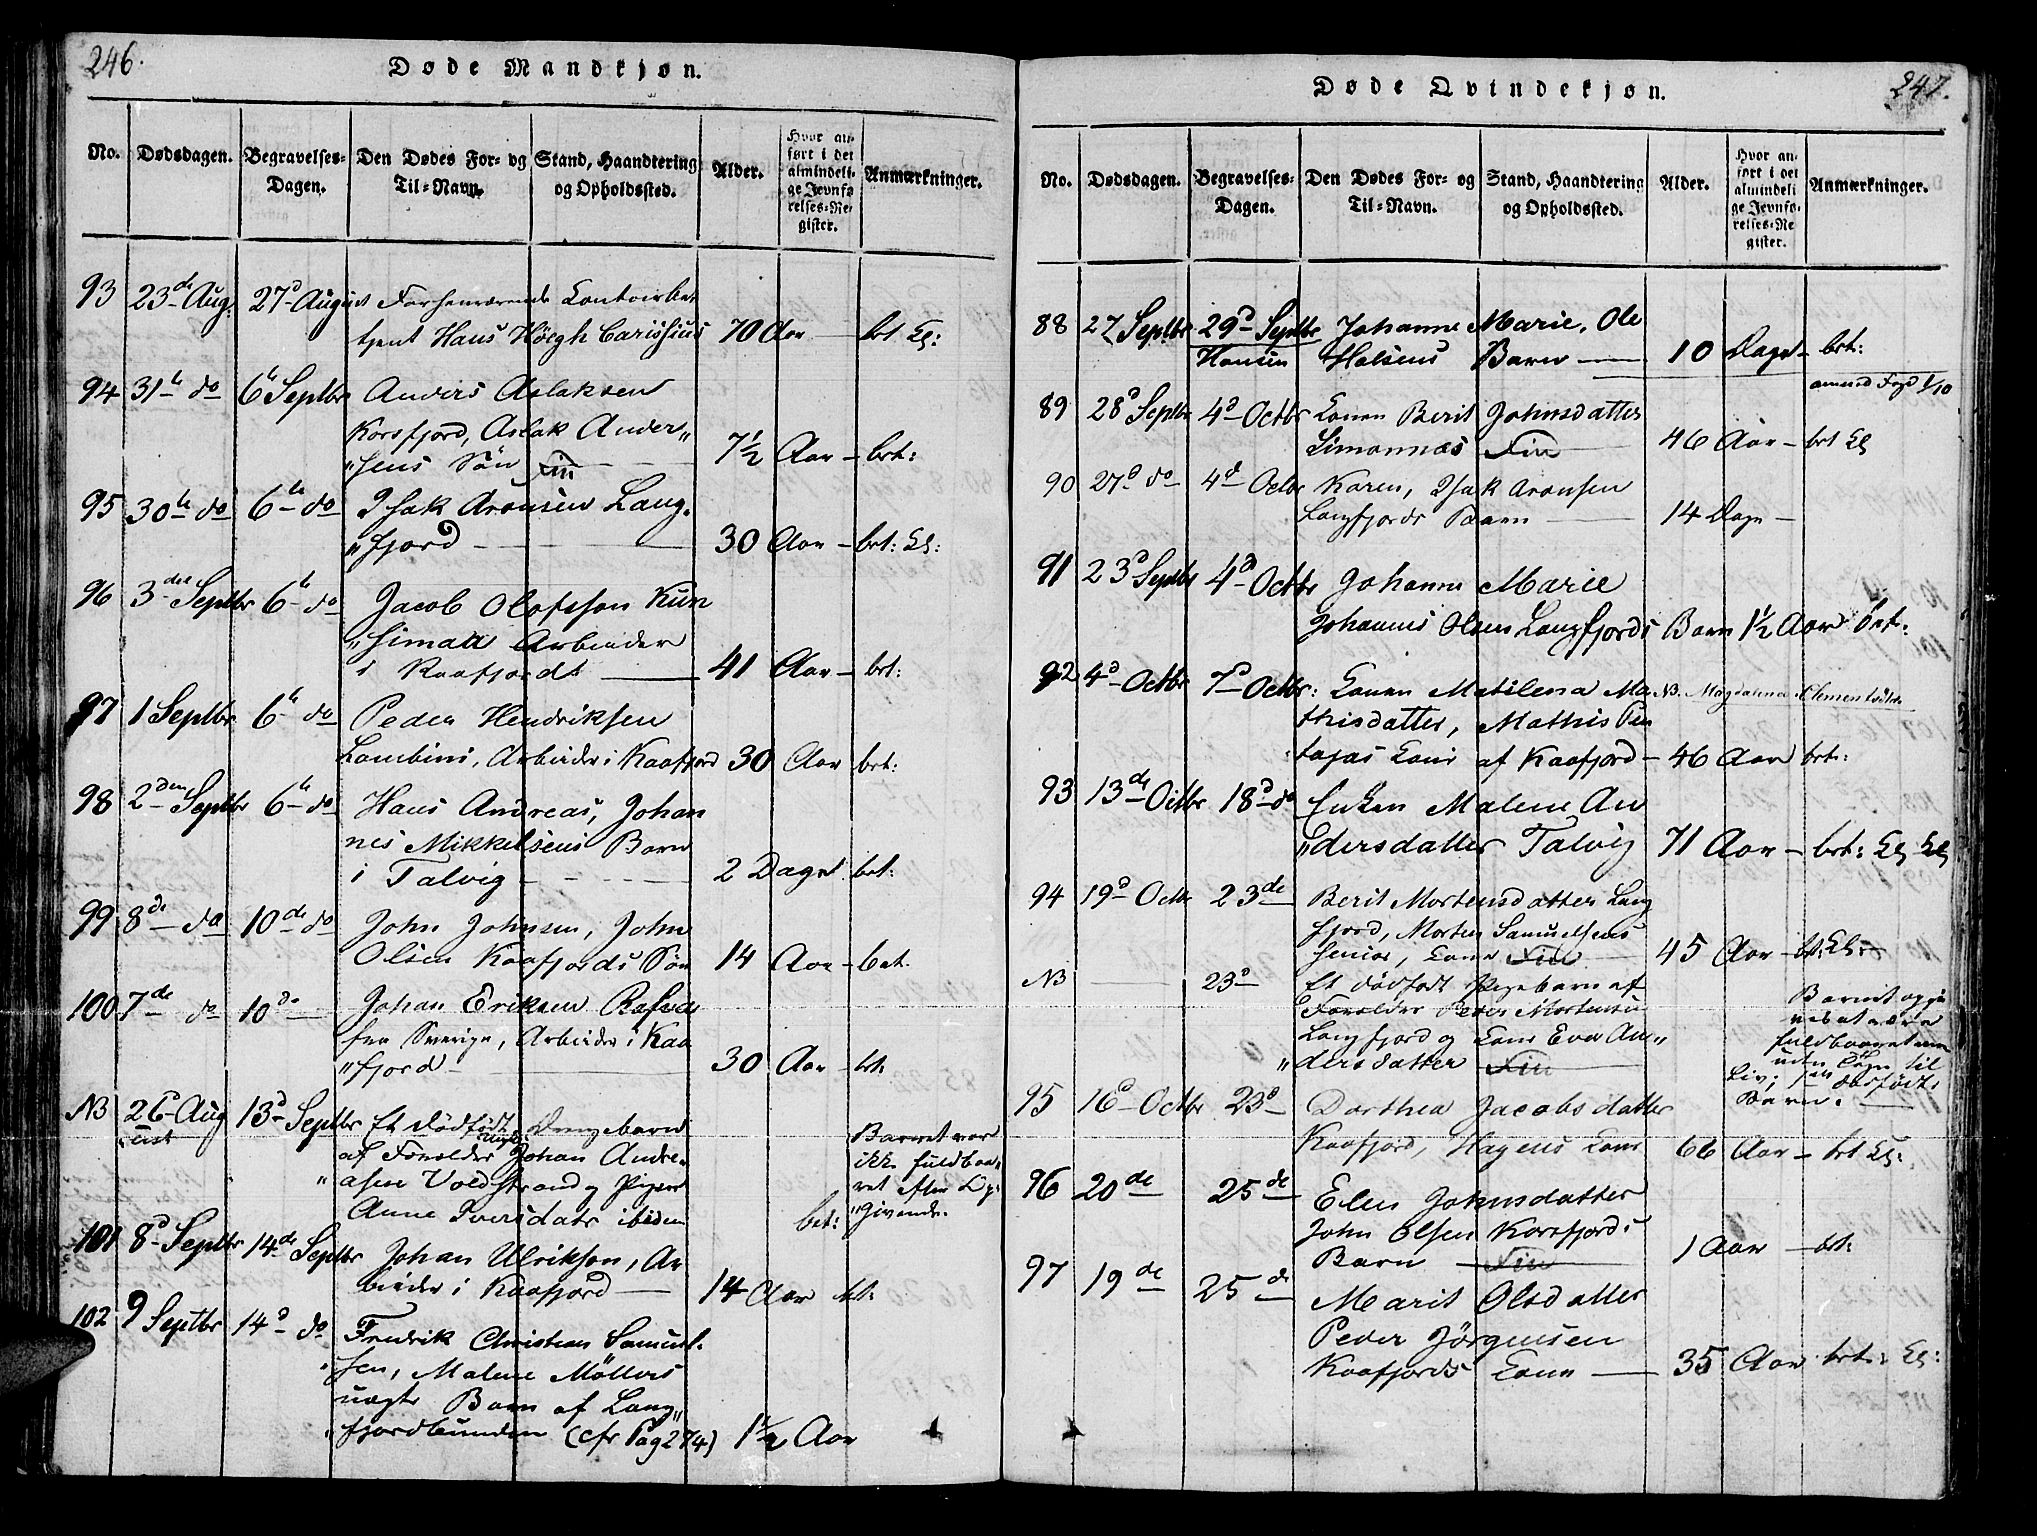 246.
Døde Mandkjøn.
No. Dødsdagen. Begravelses-Dagen. Den Dødes For- og Til-Navn. Stand, Haandtering og Opholdssted. Alder. Hvor anført i det almindelige Jevnførelses-Register. Anmærkninger.
93 23de Aug. 27d August Forhenværende Contoirbe
tjent Hans Höegh Carissius 70 Aar brt El:
94 31te do 6te Septbr Anders Aslaksen
Korsfjord, Aslak Ander„
„sens Søn Fin 7½ Aar brt:
95 30te do 6te do Isak Aronsen Lang-
„fjord 30 Aar brt: El:
96 3die Septbr 6te do Jacob Olofsson Kun
„simaa Arbeider
i Kaafjordt 41 Aar brt:
97 1 Septbr 6te do Peder Hendriksen
Lambini, Arbeider i Kaafjord 30 Aar brt:
98 2den Septbr 6te do Hans Andreas, Johan
nes Mikkelsens Barn
i Talvig 2 Dage brt:
99 8de do 10de do John Johnsen, John
Olsen Kaafjords Søn 14 Aar brt.
100 7de do 10de Johan Eriksen
fra Sverige, Arbeider i Kaa
„fjord 30 Aar brt:
NB 26 Aug 13d Septbr Et dødfødt uægte Drengebarn
af Forældre Johan Andre-
asen Voldstrand og Pigen
Anne Iversdatr ibidem brt:
Barnet var
ikke fuldbaa„
ret efter Op„
„givende.
101 8d Septbr 14de Septbr Johan Ulrikson, Ar
beider i Kaafjord 14 Aar brt:
102 9 Septbr 14d do Fredrik Christian Samuel-
sen, Malene Möllers
uægte Barn af Lang„
„fjordbunden (cfr Pag 274) 1½ Aar
247.
Døde Qvindekjøn.
No. Dødsdagen. Begravelses-Dagen. Den Dødes For- og Til-Navn. Stand, Haandtering og Opholdssted. Alder. Hvor anført i det almindelige Jevnførelses-Register. Anmærkninger.
88 27 Septbr 29d Septbr Johanne Marie, Ole
Hansen Holsens Barn 10 Dage brt:
anmed Fogd 1/10
89 28d Septbr 4d Octbr Konen Berit Johnsdatter
Simannæs Fin 46 Aar brt El
90 27d do 4d Octbr Karen, Isak Aronsen
Langfjords Barn 14 Dage
91 23d Septbr 4d Octbr Johanne Marie
Johannes Olsen Langfjords Barn 1½ Aar brt:
92 4d Octbr 7d Octbr: Konen Matilena Ma NB. Magdalena Clementsdtr.
thisdatter, Mathis Pen
tajas Kone af Kaafjord 46 Aar brt:
93 13de Octbr 18d do Enken Malene An
„dersdatter Talvig 71 Aar brt: El El
94 19d Octbr 23de Berit Mortensdatter Lang
fjord, Morten Samuelsens
senior, Kone Fin 45 Aar brt: El:
NB 23d Et dødfødt Pigebarn af
Forældre Peder Mortensen
Langfjord og Kone Eva An„
„dersdatter Fin
Barnet opgi
ves at være
fuldbaaret men
uden Tegn til
Liv; dødfødt
Barn.
95 16d Octbr 23d Dorthea Jacobsdatter
Kaafjord, Hagens Kone 66 Aar brt El:
96 20de 25de Elen Johnsdatter
John Olsen Korsfjords
Barn Fin 1 Aar brt:
97 19de 25de Marit Olsdatter
Peder Jörgensen
Kaafjords Kone 35 Aar brt: El: